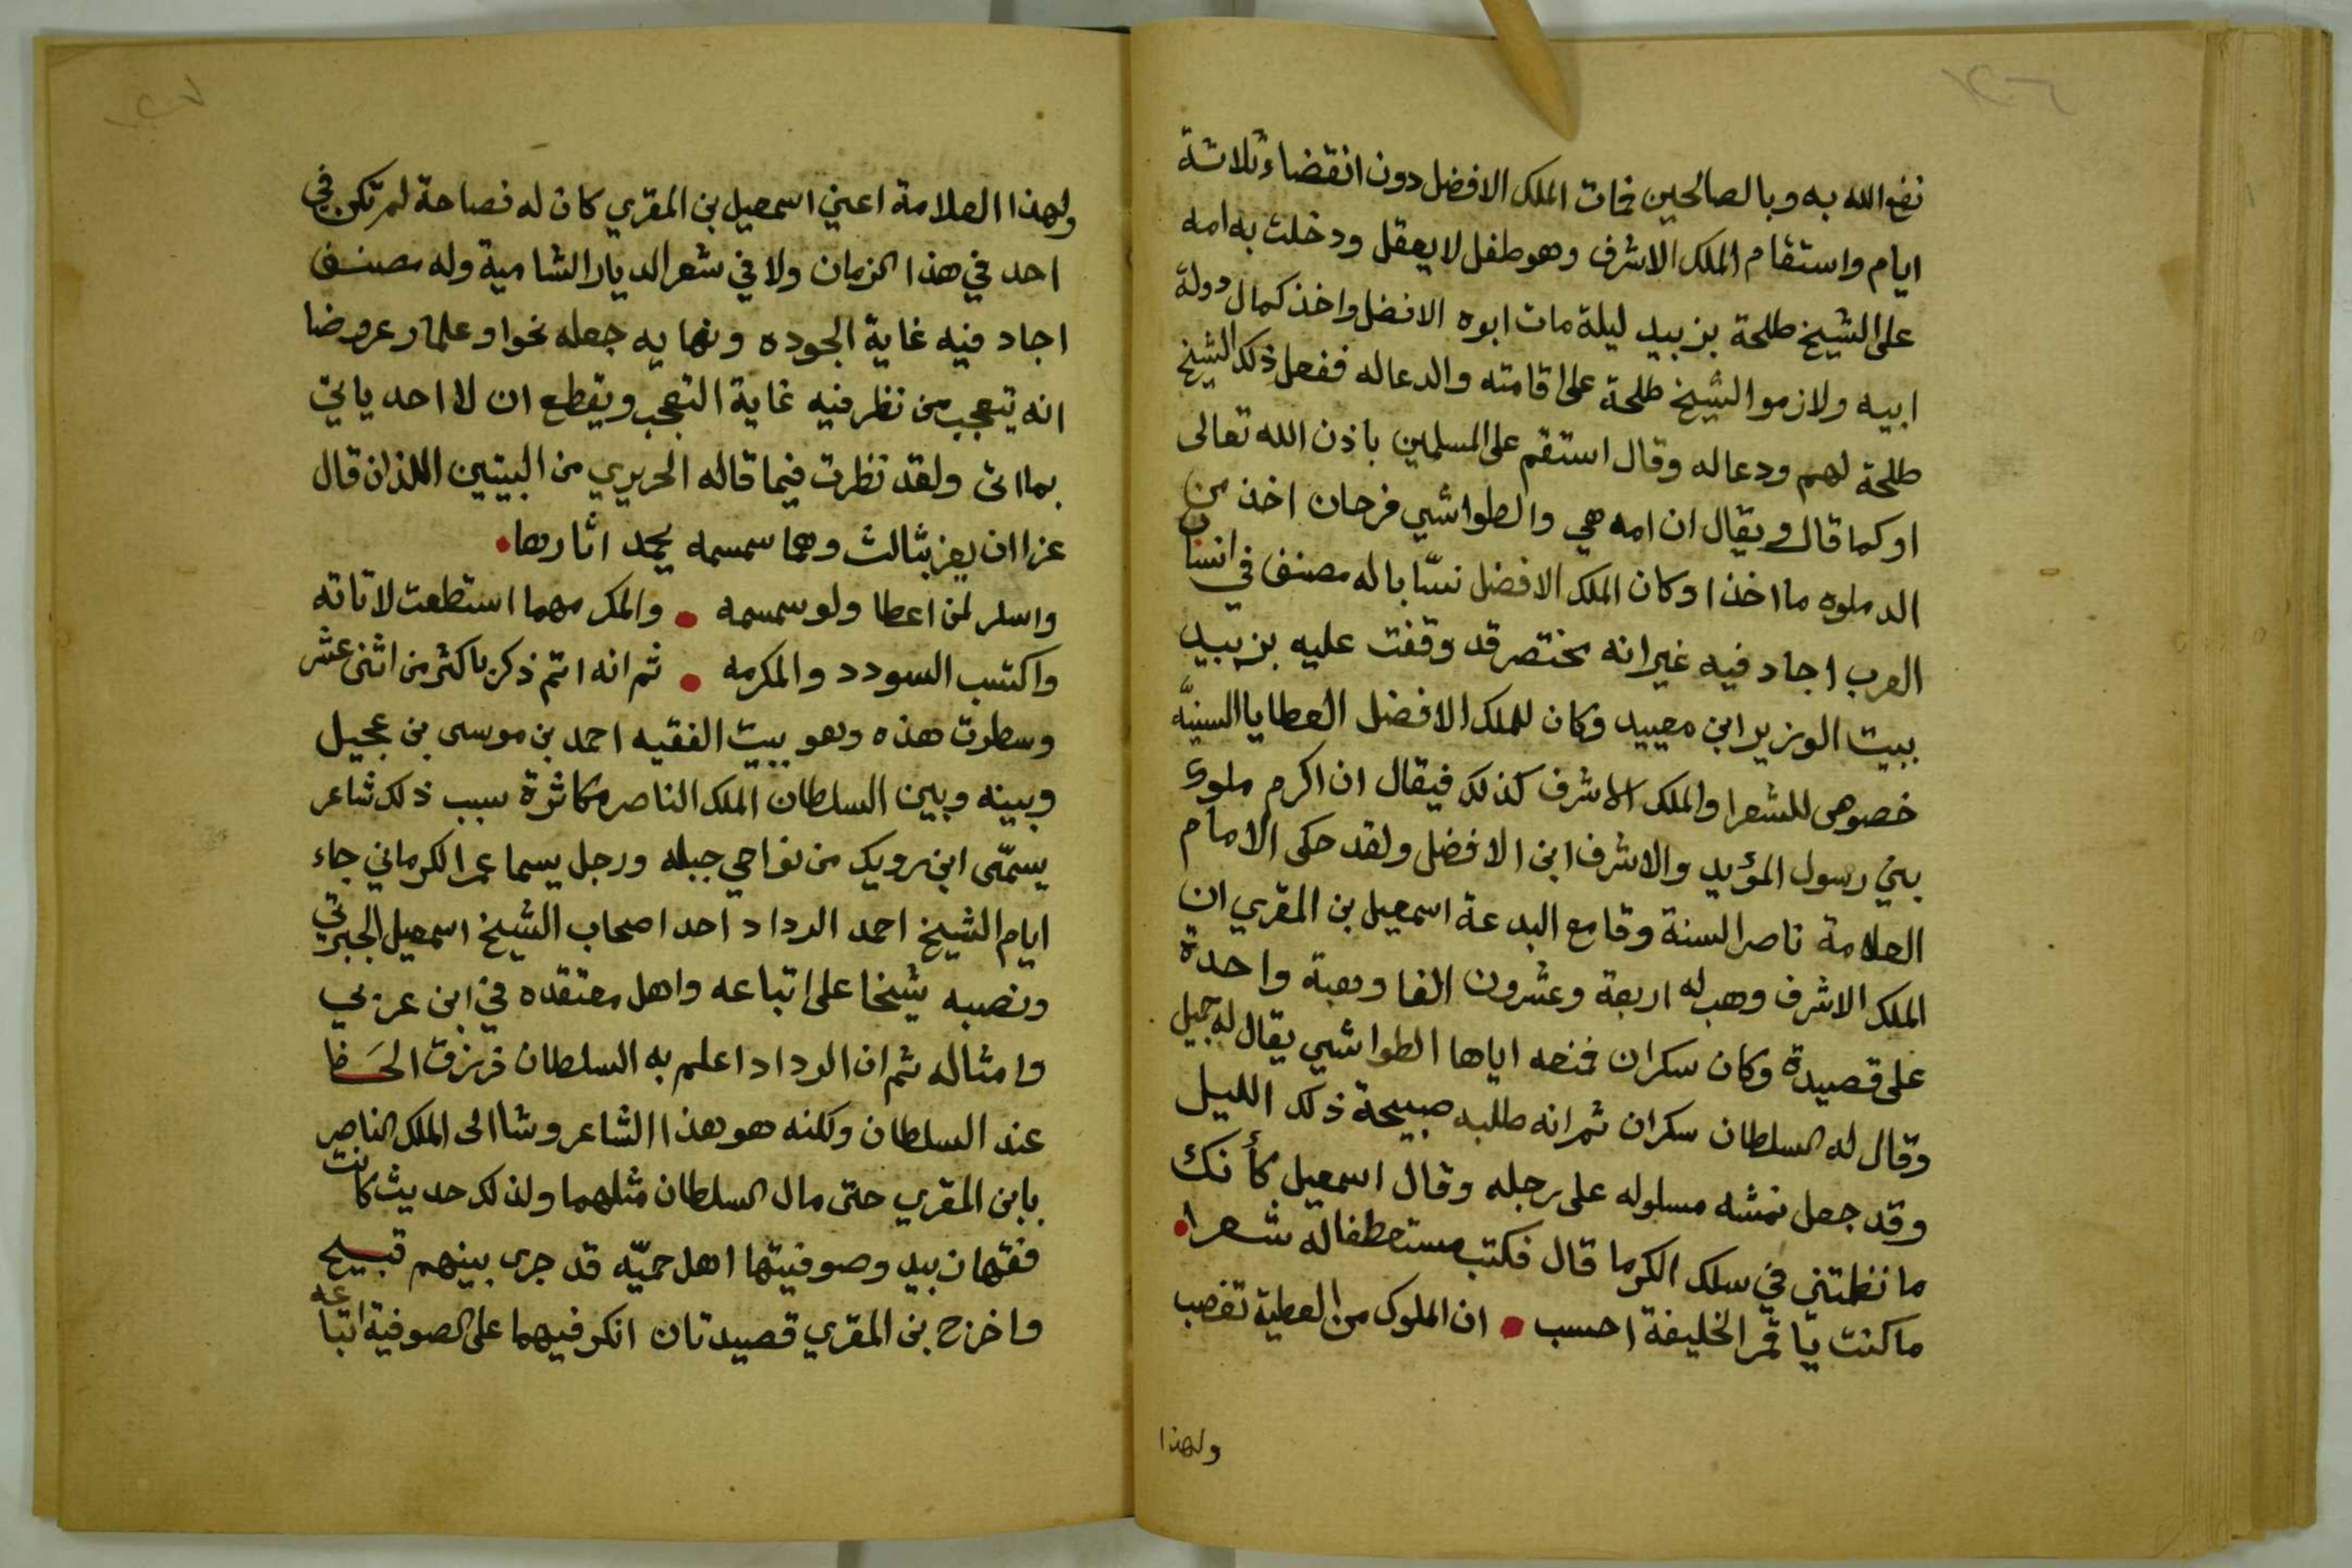 ١٢٦
نفع الله به وبالصالحين فمات الملك الافضل دون انقضاء ثلاثة
ايام واستقام الملك الاشرف وهو طفل لا يعقل ودخلت به امه
على الشيخ طلحة بزبيد ليلة مات ابوه الافضل واخذ كمال دولة
ابيه ولازموا الشيخ طلحة على اقامته والدعا له ففعل ذلك الشيخ
طلحة لهم ودعا له وقال استقم على المسلمين باذن الله تعالى
او كما قال ويقال ان امه هي والطواشي فرحان اخذ من
الدملوه ما اخذا وكان الملك الافضل نسّابا له مصنف في انساب
العرب اجاد فيه غير انه مختصر قد وقفت عليه بزبيد
ببيت الوزير ابن معيبد وكان للملك الافضل العطايا السنيّه
خصوصى للشعرا والملك الاشرف كذلك فيقال ان اكرم ملوك
بني رسول المؤيد والاشرف ابن الافضل ولقد حكى الامام
العلامة ناصر السنة وقامع البدعة اسمعيل بن المقري ان
الملك الاشرف وهب له اربعة وعشرون الفا وهبة واحدة
على قصيدة وكان سكران فمنعه اياها الطواشي يقال له جميل
وقال له السلطان سكران ثم انه طلبه صبيحة ذلك الليل
وقد جعل نمشه مسلوله على رجله وقال اسمعيل كأنك
ما نظمتني في سلك الكرما قال فكتب مستعطفا له شعرا
ما كنت يا قمر الخليفة احسب • ان الملوك من العطية تغصب
ولهذا
١٢٧
ولهذا العلامة اعني اسمعيل بن المقري كان له فصاحة لم تكن في
احد في هذا الزمان ولا في شعر الديار الشامية وله مصنف
اجاد فيه غاية الجوده ونهايه جعله نحوا وعلما وعروضا
انه يتعجب من نظر فيه غاية التعجب ويقطع ان لا احد ياتي
بما اتى ولقد نظرت فيما قاله الحريري من البيتين اللذان قال
عزا ان يعز بثالث وهما سمسمه يحمد اثارها•
واسلر لمن اعطا ولو سمسمه • والمكر مهما استطعت لا تاته
واكتسب السودد والمكرمه • ثم انه اتم ذكر باكثر من اثنى عشر
وسطرت هذه وهو ببيت الفقيه احمد بن موسى بن عجيل
وبينه وبين السلطان الملك الناصر مكاثرة سبب ذلك شاعر
يسمّى ابن رويك من نواحي جبله ورجل يسما عمر الكرماني جاء
ايام الشيخ احمد الرداد احد اصحاب الشيخ اسمعيل الجبرتي
ونصبه شيخا على اتباعه واهل معتقده في ابن عربي
وامثاله ثم ان الرداد اعلم به السلطان فرزق الحَظا
عند السلطان ولكنه هو هذا الشاعر وشا الى الملك الناصر
بابن المقري حتى مال السلطان مثلهما ولذلك حديث كانت
فقها زبيد وصوفيتها اهل حميّه قد جرى بينهم قبيح
واخرج بن المقري قصيدتان انكر فيهما على الصوفية اتباعه